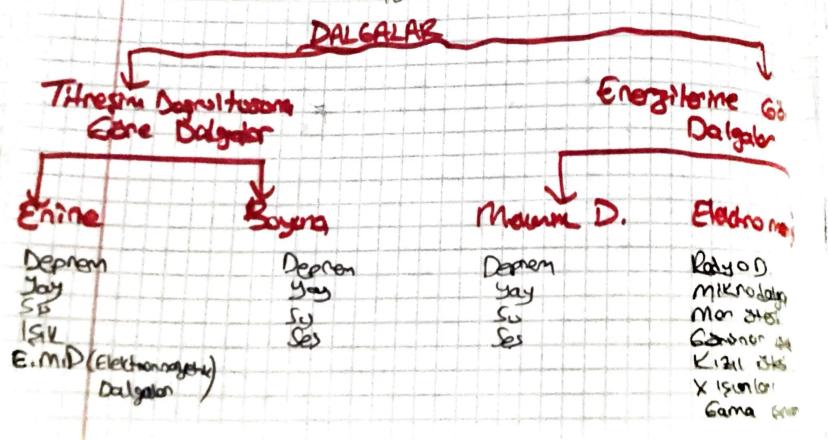 DALGALAR
Titreşim Doğrultusuna
Göre Dalgalar
Enerjilerine Gö
Dalgalar
Enine
Boyuna
Mekanik D.
Elektroma
Deprem
Yay
Su
Işık
E.M.D (Elektromagnetik
Dalgalar)
Deprem
Yay
Su
Ses
Deprem
Yay
Su
Ses
Radyo D.
Mikrodalga
Mor ötesi
Görünür
Kızıl ötesi
X ışınları
Gama